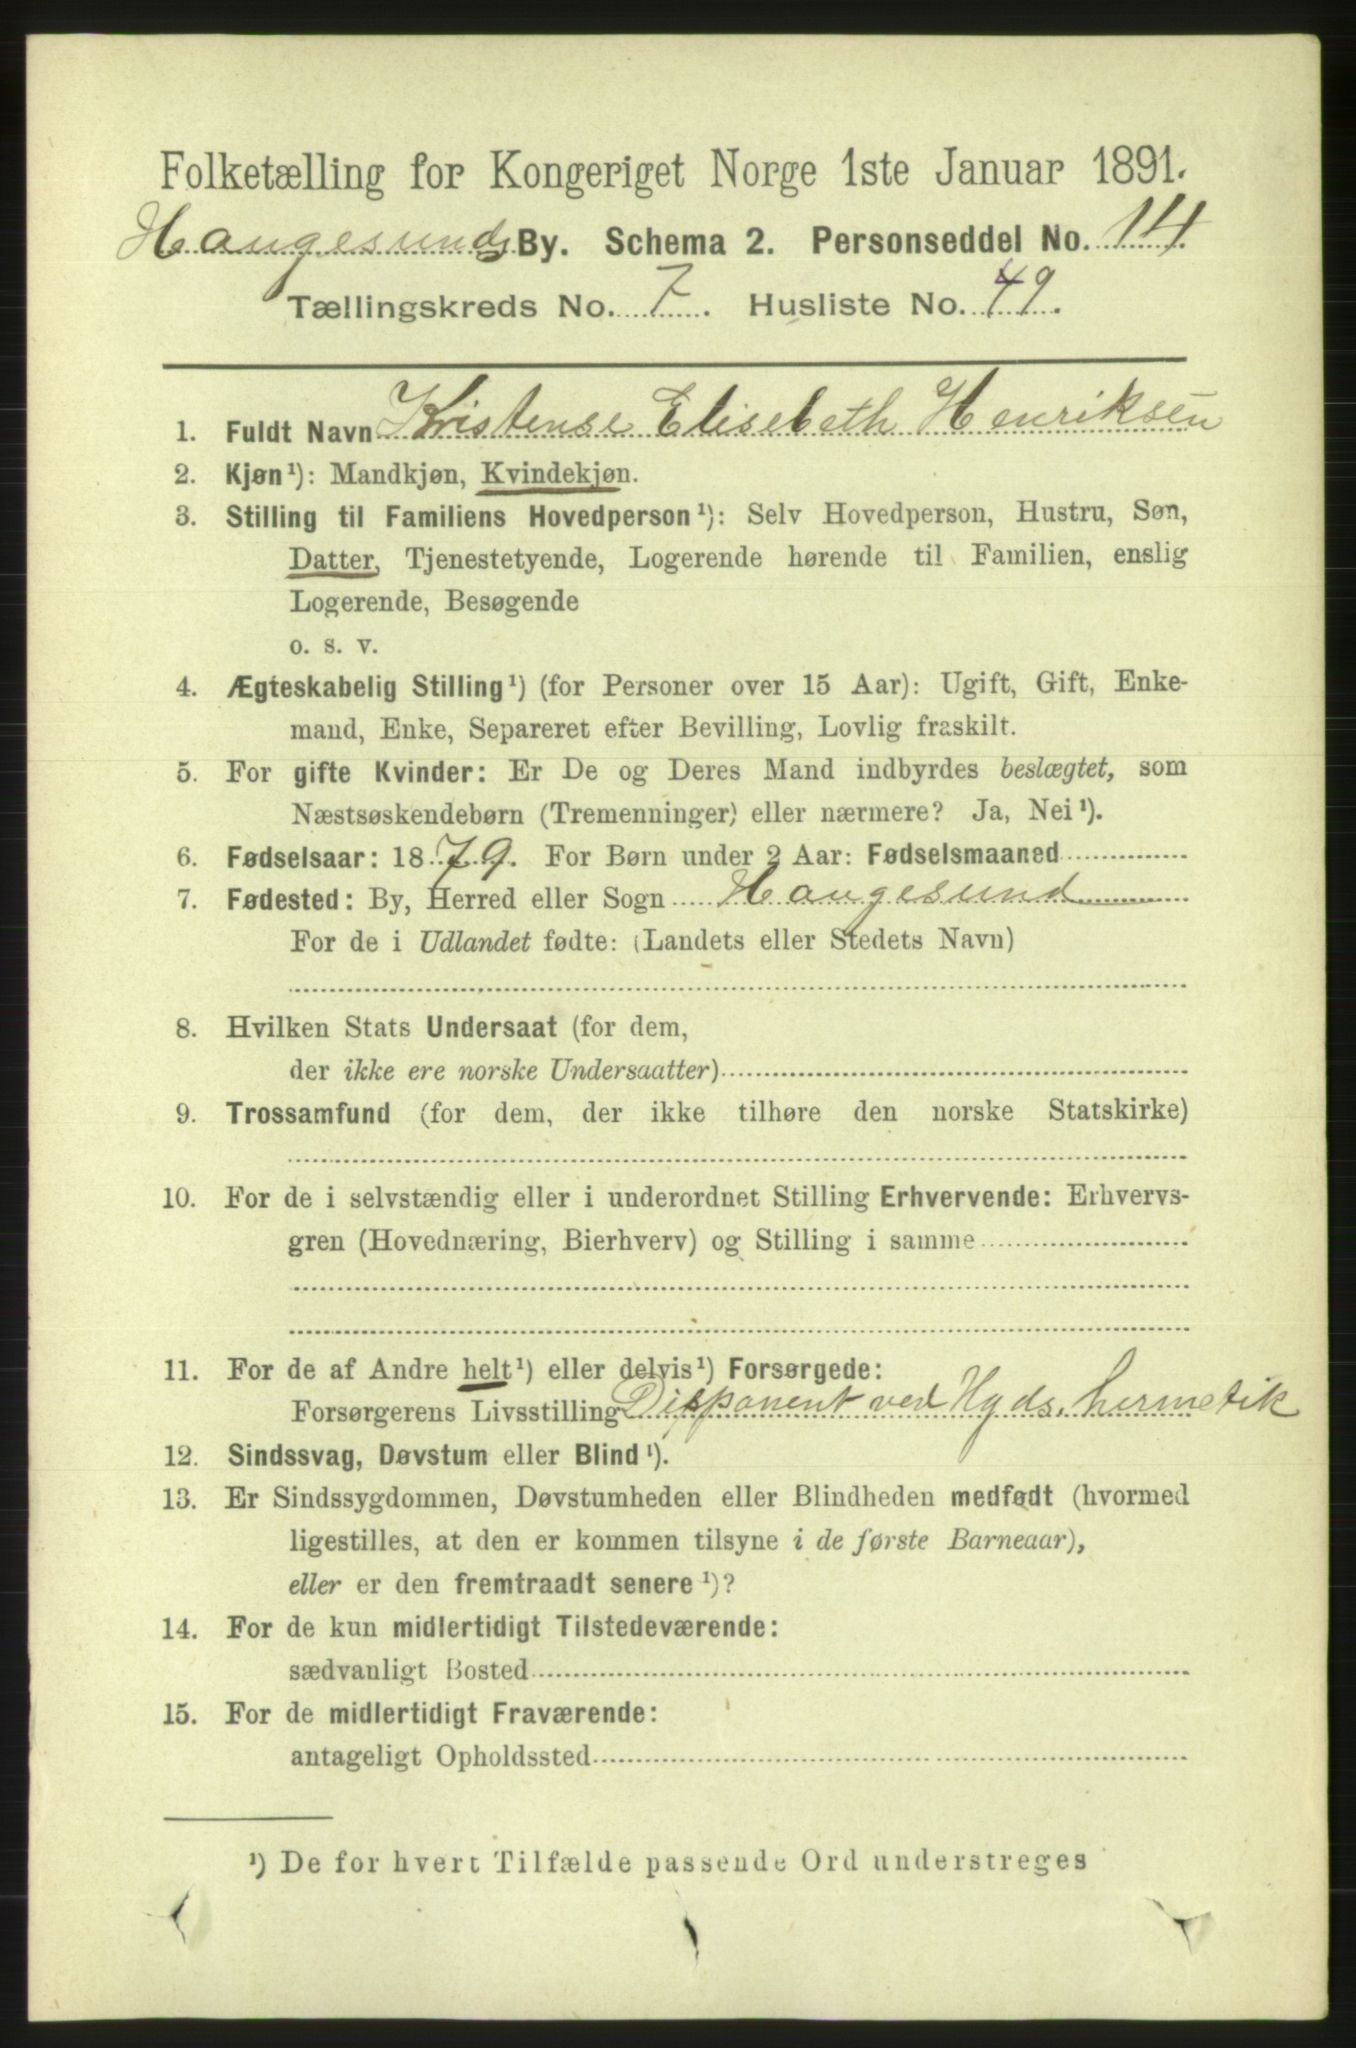 Folketælling for Kongeriget Norge 1ste Januar 1891.
Haugesunds By. Schema 2. Personseddel No. 14.
Tællingskreds No. 7. Husliste No. 49.
1. Fuldt Navn Kristense Elisebeth Henriksen
2. Kjøn ¹): Mandkjøn, Kvindekjøn.
3. Stilling til Familiens Hovedperson ¹): Selv Hovedperson, Hustru, Søn,
Datter, Tjenestetyende, Logerende hørende til Familien, enslig
Logerende, Besøgende
o. s. v.
4. Ægteskabelig Stilling ¹) (for Personer over 15 Aar): Ugift, Gift, Enke-
mand, Enke, Separeret efter Bevilling, Lovlig fraskilt.
5. For gifte Kvinder: Er De og Deres Mand indbyrdes beslægtet, som
Næstsøskendebørn (Tremenninger) eller nærmere? Ja, Nei ¹).
6. Fødselsaar: 1879. For Børn under 2 Aar: Fødselsmaaned
7. Fødested: By, Herred eller Sogn Haugesund
For de i Udlandet fødte: (Landets eller Stedets Navn)
8. Hvilken Stats Undersaat (for dem,
der ikke ere norske Undersaatter)
9. Trossamfund (for dem, der ikke tilhøre den norske Statskirke)
10. For de i selvstændig eller i underordnet Stilling Erhvervende: Erhvervs-
gren (Hovednæring, Bierhverv) og Stilling i samme
11. For de af Andre helt ¹) eller delvis ¹) Forsørgede:
Forsørgerens Livsstilling Disponent ved Hgds. hermetik
12. Sindssvag, Døvstum eller Blind ¹).
13. Er Sindssygdommen, Døvstumheden eller Blindheden medfødt (hvormed
ligestilles, at den er kommen tilsyne i de første Barneaar),
eller er den fremtraadt senere ¹)?
14. For de kun midlertidigt Tilstedeværende:
sædvanligt Bosted
15. For de midlertidigt Fraværende:
antageligt Opholdssted
¹) De for hvert Tilfælde passende Ord understreges